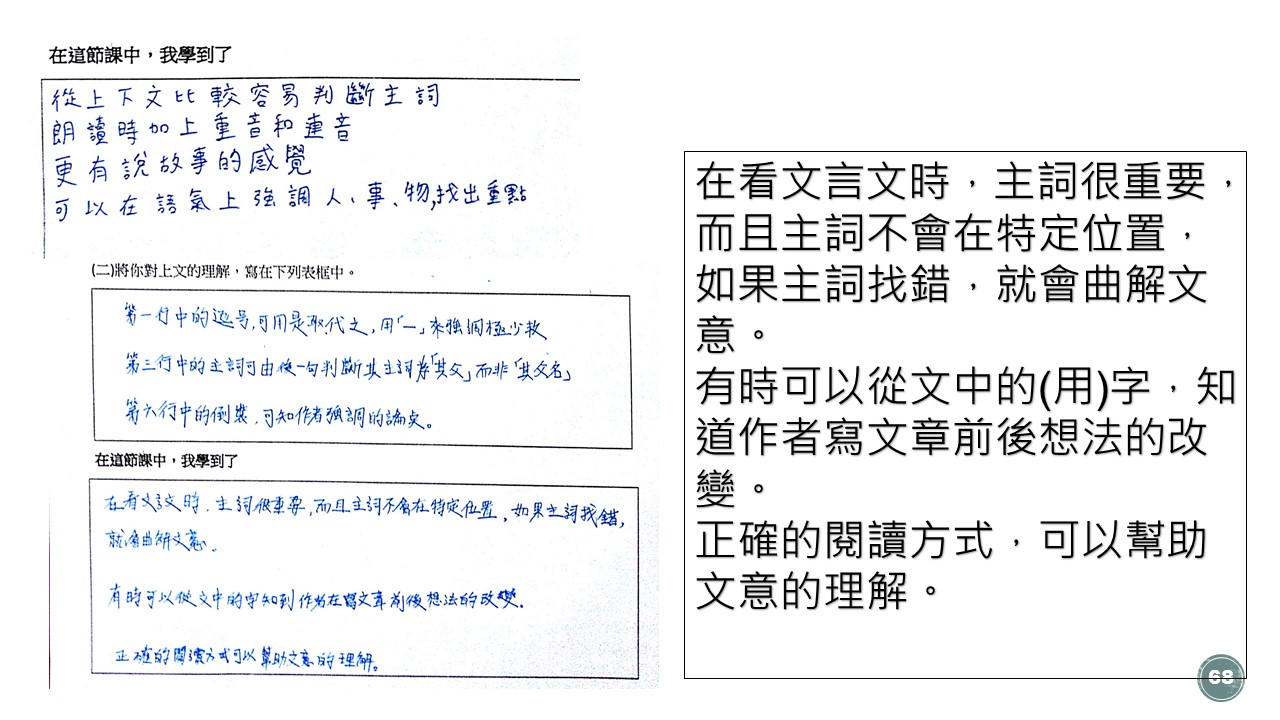 在這節課中，我學到了
從上下文比較容易判斷主詞
朗讀時加上重音和連音
更有說故事的感覺
可以在語氣上強調人、事、物,找出重點
(二)將你對上文的理解，寫在下列表框中。
第一行中的逗号,可用是取代之,用「一」來強調極少數
第三行中的主詞可由後一句判斷其主詞為「其父」而非「其父名」
第六行中的倒裝,可知作者強調的論史。
在這節課中，我學到了
在看文言文時,主詞很重要,而且主詞不會在特定位置,如果主詞找錯,
就會曲解文意。
有時可以從文中的字知到作者在寫文章前後想法的改變.
正確的閱讀方式可以幫助文意的理解。
在看文言文時，主詞很重要，
而且主詞不會在特定位置，
如果主詞找錯，就會曲解文
意。
有時可以從文中的(用)字，知
道作者寫文章前後想法的改
變。
正確的閱讀方式，可以幫助
文意的理解。
68